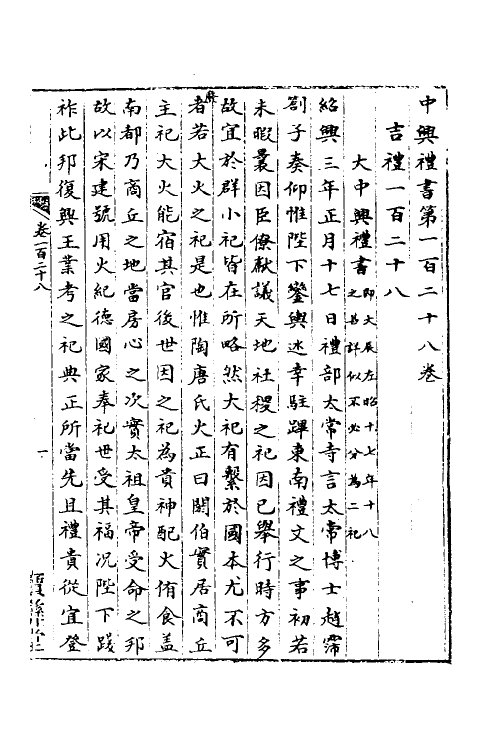 中興禮書第一百二十八卷
吉禮一百二十八
大中興禮書
即大辰左昭十七年十八
之占詳似不必分為二祀
紹興三年正月十七日禮部太常寺言太常博士趙霈
劄子奏仰惟陛下鑾輿巡幸駐蹕東南禮文之事初若
未暇曩因臣僚獻議天地社稷之祀因已舉行時方多
故宜於群小祀皆在所略然大祀有繫於國本尤不可
者若大火之祀是也惟陶唐氏火正曰閼伯實居商丘
主祀大火能宿其官後世因之祀為貴神配火侑食蓋
南都乃商丘之地當房心之次實太祖皇帝受命之邦
故以宋建號用火紀德國家奉祀世受其福況陛下踐
祚此邦復興王業考之祀典正所當先且禮貴從宜登
卷一百二十八
一